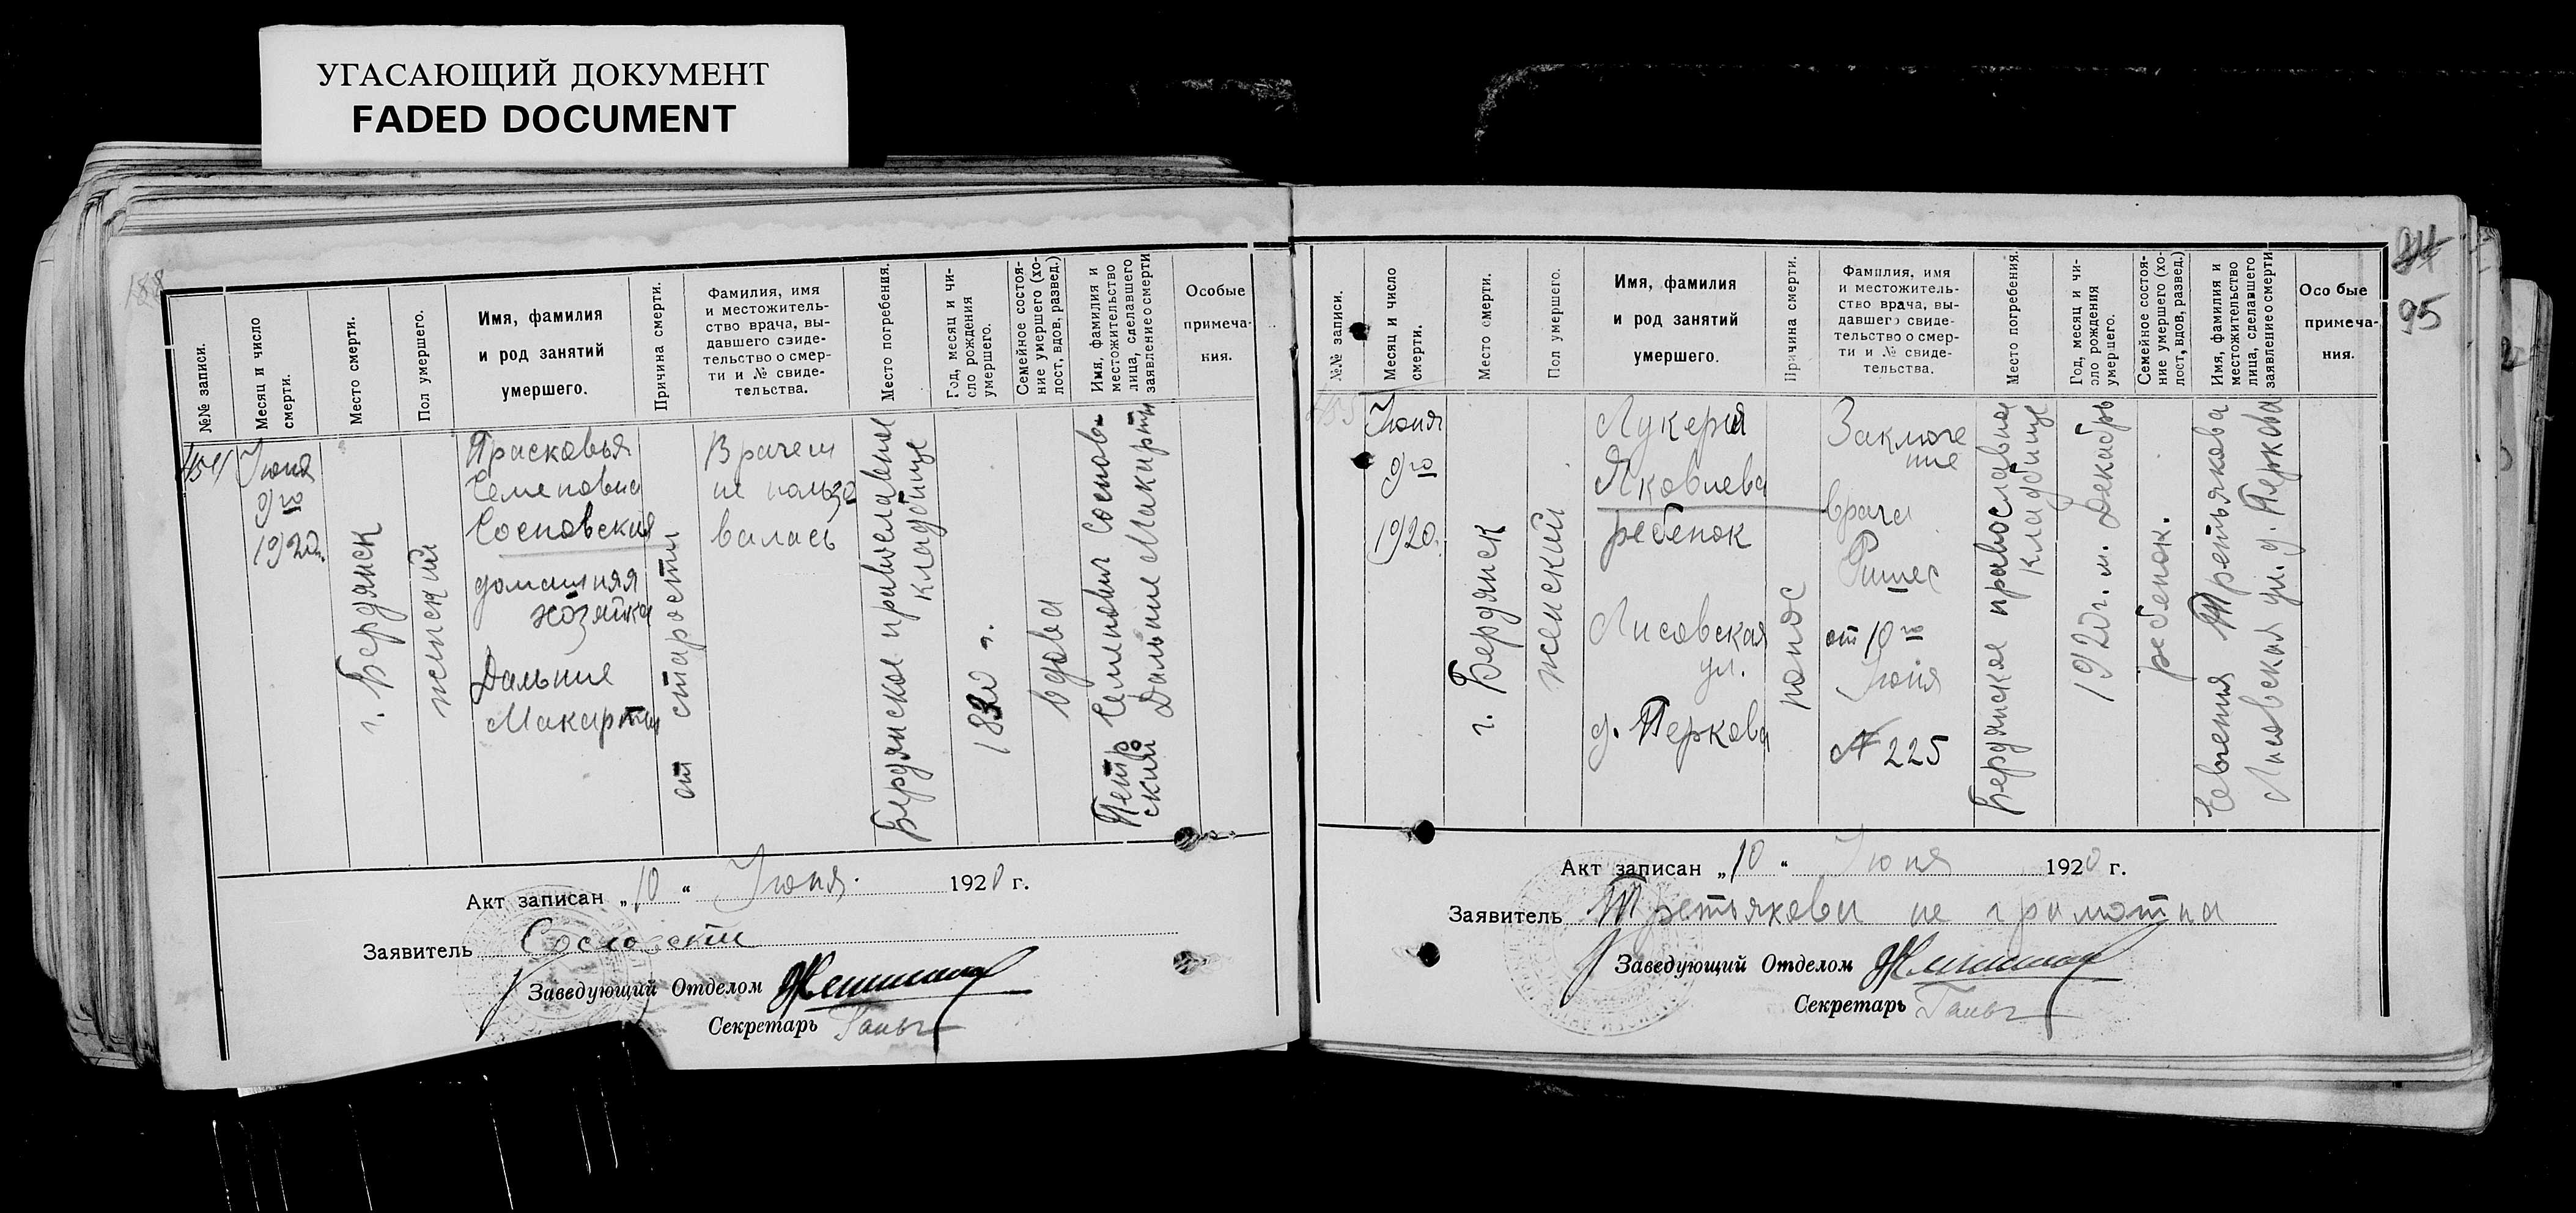 УГАСАЮЩИЙ ДОКУМЕНТ
FADED DOCUMENT
188
№№ записи.
Месяц и число
смерти.
Место смерти.
Пол умершего.
Имя, фамилия
и род занятий
умершего.
Причина смерти.
Фамилия, имя
и местожитель-
ство врача, вы-
давшего свиде-
тельство о смер-
ти и № свиде-
тельства.
Место погребения.
Год, месяц и чи-
сло рождения
умершего.
Семейное состоя-
ние умершего (хо-
лост, вдов, развед.)
Имя, фамилия и
местожительство
лица, сделавшего
заявление о смерти
Особые
примеча-
ния.
454
Июня
9го
1920г.
г. Бердянск
женский
Прасковья
Семеновна
Сосновская
домашняя
хозяйка
Дальние
Макорты
от старости
Врачем
не пользо
валась
Бердянское православное
кладбище
1820 г.
вдова
Петр Семенович Соснов-
ский Дальние Макорты
Акт записан „10“ Июня 1920 г.
Заявитель
Заведующий Отделом
Секретарь
84
95
№№ записи.
Месяц и число
смерти.
Место смерти.
Пол умершего.
Имя, фамилия
и род занятий
умершего.
Причина смерти.
Фамилия, имя
и местожитель-
ство врача, вы-
давшего свиде-
тельство о смер-
ти и № свиде-
тельства.
Место погребения.
Год, месяц и чи-
сло рождения
умершего.
Семейное состоя-
ние умершего (хо-
лост, вдов, развед.)
Имя, фамилия и
местожительство
лица, сделавшего
заявление о смерти
Особые
примеча-
ния.
455
Июня
9го
1920.
г. Бердянск
женский
Лукерия
Яковлева
ребенок
Лисовская
ул.
д. Перкова
понос
Заключе
ние
врача
от 10го
Июня
№ 225
Бердянское православное
кладбище
1920г. м. Декабрь
ребенок.
Евгения Третьякова
Лисовская ул. д. Перкова
Акт записан „10“ Июня 1920 г.
Заявитель Третьякова не грамотна
Заведующий Отделом
Секретарь